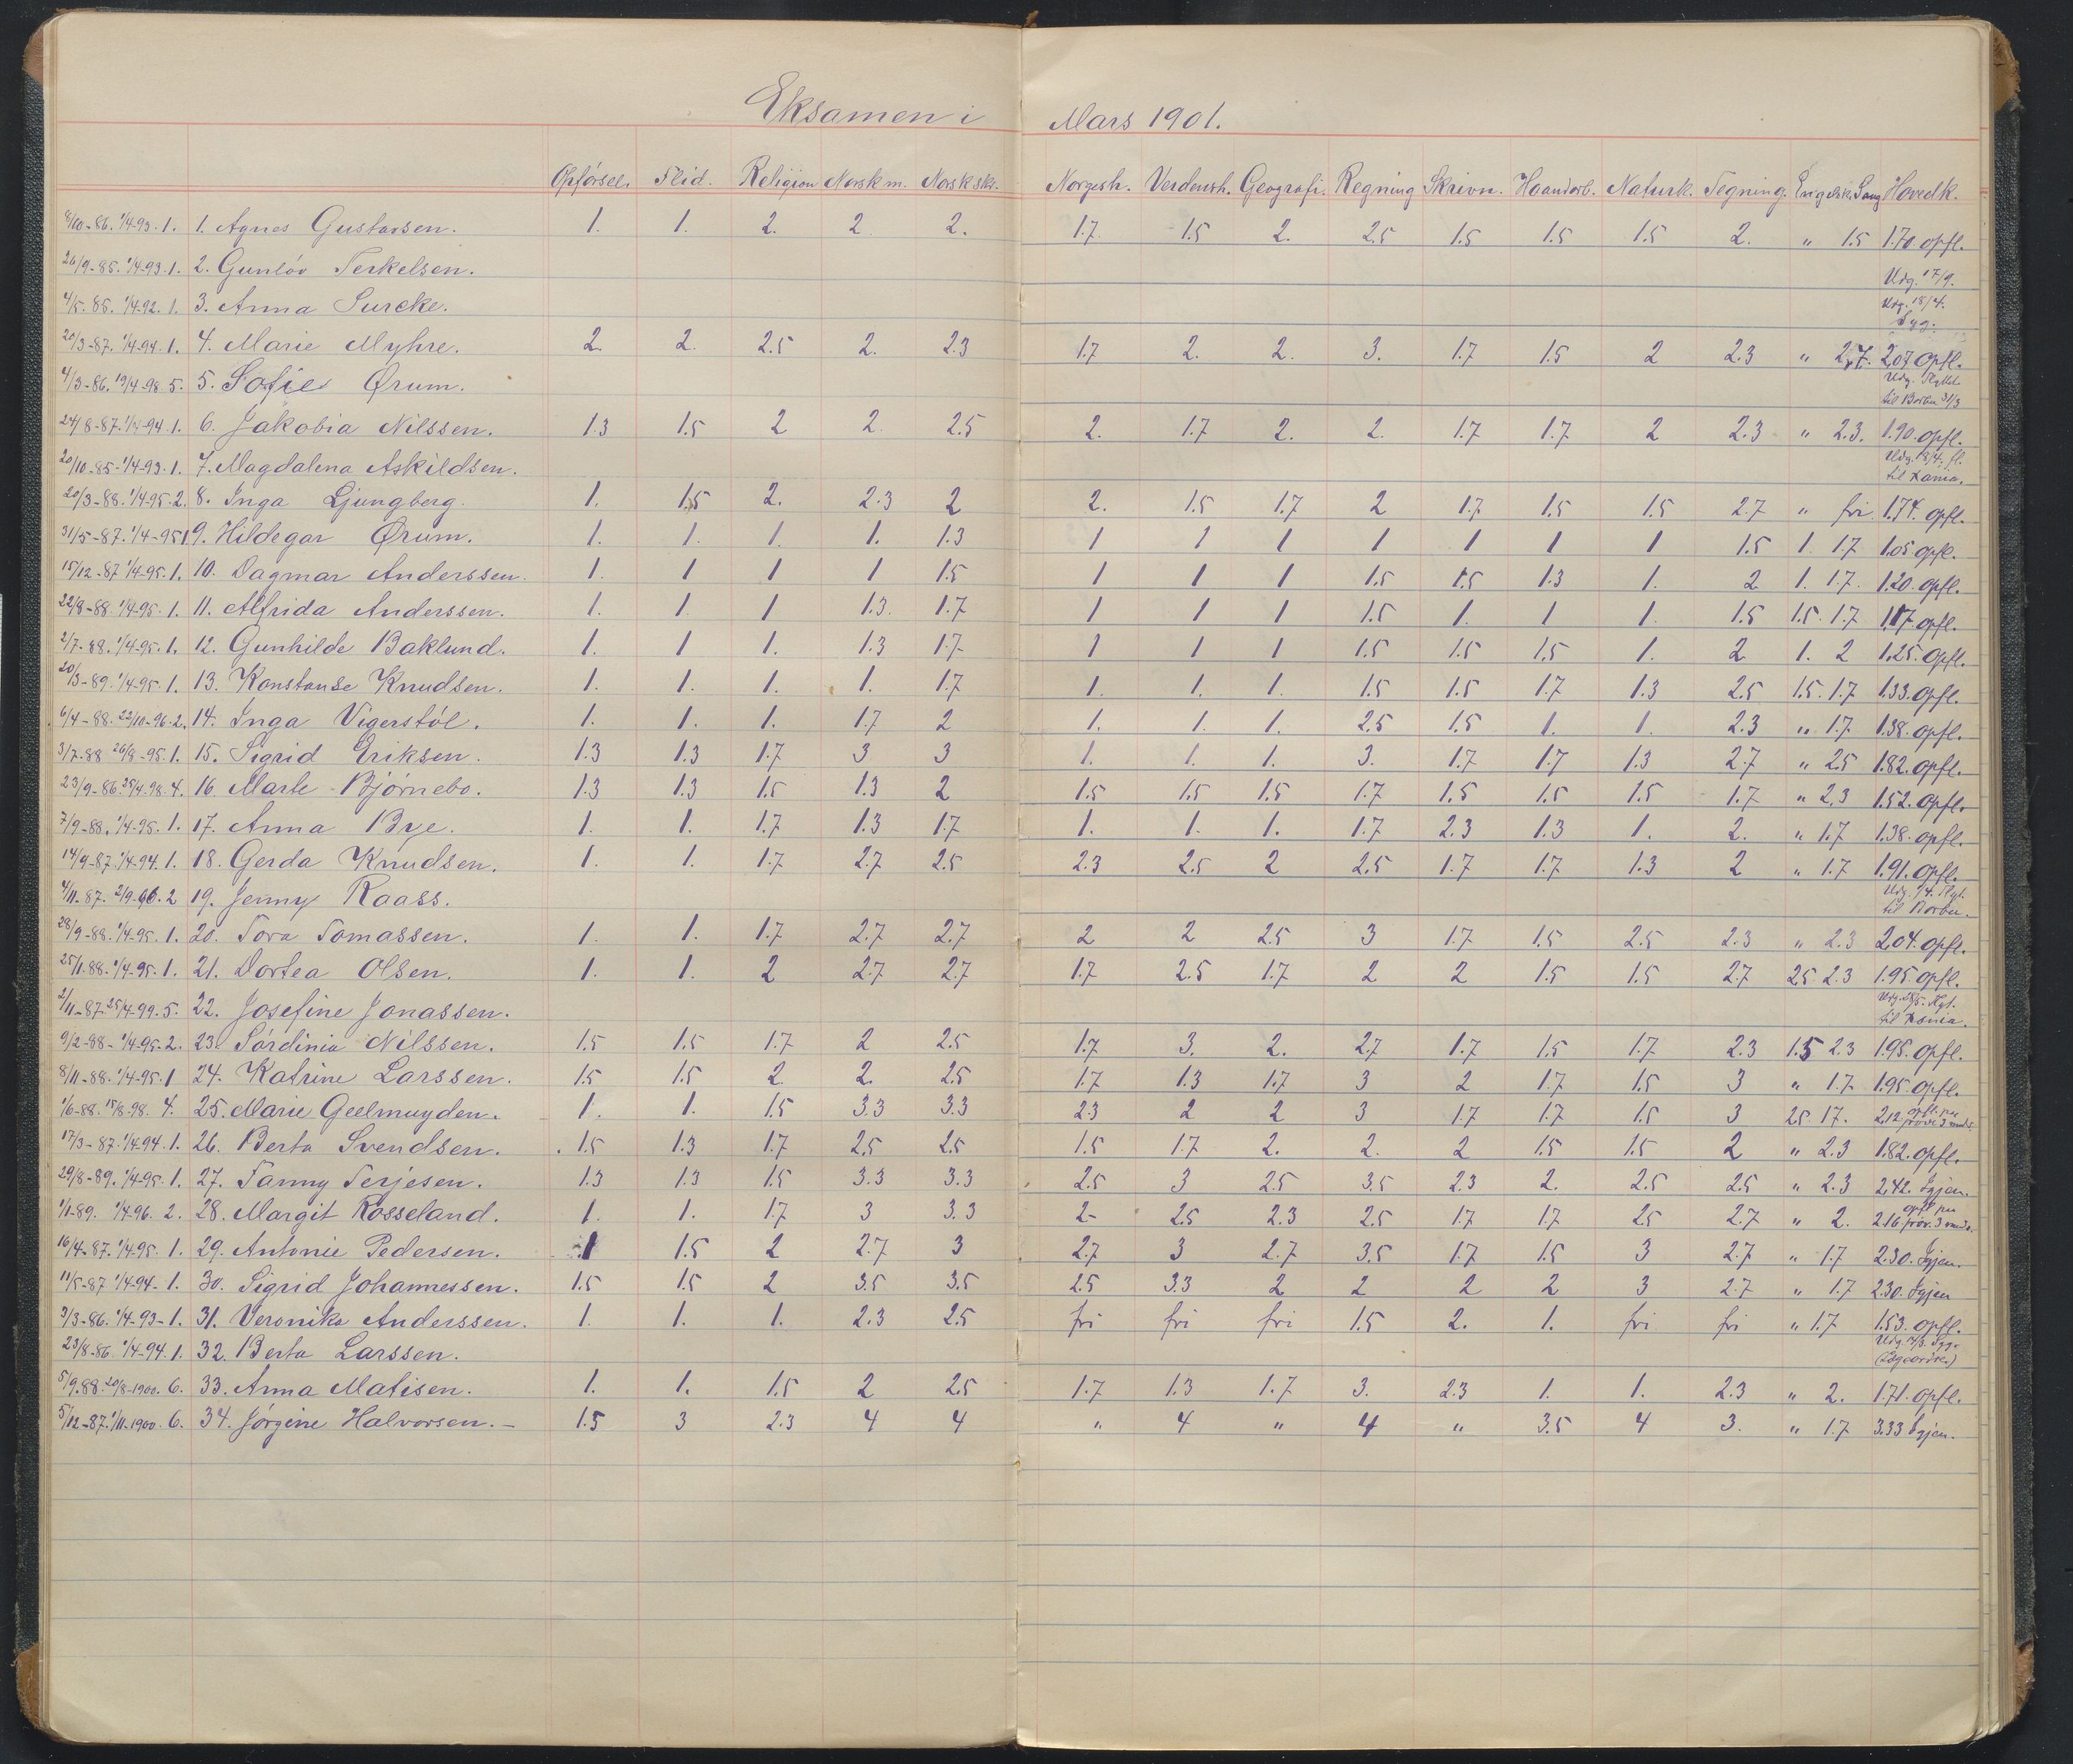 Eksamen i Mars 1901.
Opførsel. Flid. Religion Norsk m. Norsk skr. Norgesh. Verdensh. Geografi. Regning Skrivn. Haandarb. Naturk. Tegning. Engelsk. Sang Hovedk.
8/10-86. 1/4-93. 1. 1. Agnes Gustavsen. 1. 1. 2. 2 2. 1.7. 1.5 2. 2.5 1.5 1.5 1.5 2. " 1.5 1.70 opfl.
26/9-85. 1/4-93. 1. 2. Gunløv Terkelsen. Udg. 17/9.
4/5-85. 1/4-92. 1. 3. Anna Surcke. Udg. 18/4. Syg.
20/3-87. 1/4-94. 1. 4. Marie Myhre. 2 2 2.5 2. 2.3 1.7 2. 2. 3. 1.7 1.5 2 2.3 " 2.7. 2,07 opfl.
4/3-86. 19/4-98 5. 5. Sofie Ørum. Udg. Flyttet
til Barbu 31/3
24/8-87. 1/4-94. 1. 6. Jakobia Nilssen. 1.3 1.5 2 2 2.5 2. 1.7 2. 2. 1.7 1.7 2 2.3 " 2.3. 1.90. opfl.
20/10-85- 1/4-93. 1. 7. Magdalena Askildsen. Udg. 18/4. fl.
til Kania.
20/3-88. 1/4-95. 2. 8. Inga Ljungberg. 1. 1.5 2. 2.3 2 2. 1.5 1.7 2 1.7 1.5 1.5 2.7 " fri. 1.74. opfl.
31/5-87. 1/4-95 1 9. Hildegar Ørum. 1. 1. 1. 1. 1.3 1 1 1 1 1 1 1 1.5 1. 1.7 1.05 opfl.
15/12-87 1/4-95. 1. 10. Dagmar Anderssen. 1. 1 1 1 1.5 1 1 1 1.5 1.5 1.3 1. 2 1. 1.7. 1.20. opfl.
22/8-88. 1/4-95. 1. 11. Alfrida Anderssen. 1. 1. 1 1.3. 1.7 1 1 1 1.5 1. 1 1. 1.5 1.5. 1.7 1.17. opfl.
2/7-88. 1/4-95. 1. 12. Gunhilde Baklund. 1. 1 1. 1.3 1.7- 1 1 1 1.5 1.5 1.5 1. 2 1. 2 1.25. opfl.
20/3-89. 1/4-95. 1. 13. Konstanse Knudsen. 1. 1. 1. 1. 1.7 1. 1. 1. 1.5 1.5 1.7 1.3 2.5 1.5. 1.7 1.33. opfl.
6/4-88. 22/10-96. 2. 14. Inga Vigerstøl. 1. 1. 1. 1.7 2 1. 1. 1. 2.5 1.5 1. 1. 2.3 " 1.7 1.38. opfl.
3/7-88 26/8-95. 1. 15. Sigrid Eriksen. 1.3 1.3 1.7 3 3 1. 1. 1. 3. 1.7 1.7 1.3 2.7 " 2.5 1.82. opfl.
23/9-86. 25/4-98. 4. 16. Marte Bjørnebo. 1.3 1.3 1.5 1.3 2 1.5 1.5 1.5 1.7 1.5 1.5 1.5 1.7 " 2,3 1.52. opfl.
7/9-88. 1/4-95. 1. 17. Anna Bye. 1. 1. 1.7 1.3 1.7 1. 1. 1. 1.7 2.3 1.3 1. 2. " 1.7 1.38. opfl.
14/9-87. 1/4-94. 1. 18. Gerda Knudsen. 1. 1. 1.7 2.7 2.5 2.3 2.5 2 2.5 1.7 1.7 1.3 2 " 1.7 1.91. opfl.
4/11-87. 2/9-96. 2 19. Jenny Raass. Udg. 1/4. Flyt.
til Barbu.
28/9-88. 1/4-95. 1. 20. Tora Tomassen. 1. 1. 1.7 2.7 2.7 2 2 2.5 3 1.7 1.5 2.5 2.3 " 2.3 2,04. opfl.
25/1-88. 1/4-95. 1. 21. Dortea Olsen. 1. 1. 2 2.7 2.7 1.7 2.5 1.7 2 2 1.5 1.5 2.7 2.5 2.3 1.95. opfl.
2/11-87. 25/4-99. 5. 22. Josefine Jonassen. Flyt.
til Kania.
9/2-88- 1/4-95. 2. 23. Tørdinia Nilssen. 1.5 1.5 1.7 2 2.5 1.7 3. 2. 2.7 1.7 1.5 1.7 2.3 1.5 2.3 1.95. opfl.
8/11-88. 1/4-95. 1 24. Katrine Larssen. 1.5 1.5 2. 2. 2.5 1.7 1.3 1.7 3 2 1.7 1.5 3 " 1.7 1.95. opfl.
1/6-88. 15/8-98. 4. 25. Marie Geelmuyden. 1. 1. 1.5 3.3 3.3 2.3 2 2 3 1.7 1.7 1.5 3 2.5. 1.7. 2,12 opfl. paa prøve 3 mdr.
17/3-87. 1/4-94. 1. 26. Berta Svendsen. 1.5 1.3 1.7 2.5 2.5 1.5 1.7 2. 2. 2 1.5 1.5 2 " 2.3 1.82. opfl.
29/8-89. 1/4-95. 1. 27. Fanny Terjesen. 1.3 1.3 1.5 3.3 3.3 2.5 3 2.5 3.5 2.3 2. 2.5 2.5 " 2.3 2,42. Igjen.
1/1-89. 1/4-96. 2. 28. Margit Rosseland. 1. 1. 1.7 3 3.3 2- 2.5 2.3 2.5 1.7 1.7 2.5 2.7 " 2. 2.16. opfl paa prøv. 3 mdr.
16/4-87. 1/4-95. 1. 29. Antonie Pedersen. 1 1.5 2 2.7 3 2.7 3 2.7 3.5 1.7 1.5 3 2.7 " 1.7 2.30. Igjen.
11/5-87 1/4-94- 1. 30. Sigrid Johannessen. 1.5 1.5 2 3.5 3.5 2.5 3.3 2 2 2 2 3 2.7 " 1.7 2.30. Igjen
3/3-86. 1/4-93- 1. 31. Veronika Anderssen. 1. 1. 1. 2.3 2.5 fri fri fri 1.5 2. 1. fri fri " 1.7 1.53. opfl.
23/8-86. 1/4-94. 1. 32. Berta Larssen. Udg. Syg.
5/9.88. 20/8-1900. 6. 33. Anna Matisen. 1. 1. 1.5 2 2.5 1.7 1.3 1.7 3. 2.3 1. 1. 2.3 " 2. 1.71. opfl.
5/12-87. 1/11-1900. 6. 34. Jørgine Halvorsen. - 1.5 3 2.3 4 4 " 4 " 4 " 3.5 4 3. " 1.7 3.33 Igjen.